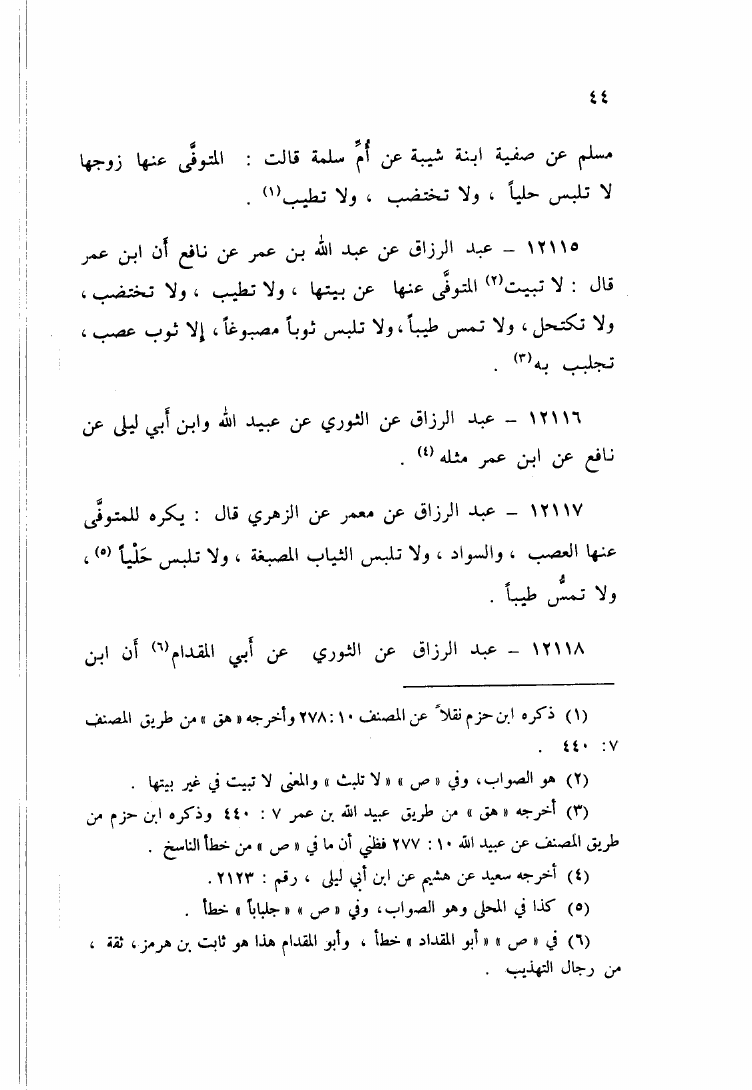 ٤٤
مسلم عن صفية ابنة شيبة عن أُمِّ سلمة قالت : المتوفَّى عنها زوجها
لا تلبس حلياً ، ولا تختضب ، ولا تطيب(١) .
١٢١١٥ – عبد الرزاق عن عبد الله بن عمر عن نافع أن ابن عمر
قال : لا تبيت(٢) المتوفَّى عنها عن بيتها ، ولا تطيب ، ولا تختضب ،
ولا تكتحل ، ولا تمس طيباً ، ولا تلبس ثوباً مصبوغاً ، إلا ثوب عصب ،
تجلبب به(٣) .
١٢١١٦ – عبد الرزاق عن الثوري عن عبيد الله وابن أبي ليلى عن
نافع عن ابن عمر مثله(٤) .
١٢١١٧ – عبد الرزاق عن معمر عن الزهري قال : يكره للمتوفَّى
عنها العصب ، والسواد ، ولا تلبس الثياب المصبغة ، ولا تلبس حَلْياً(٥) ،
ولا تمسُّ طيباً .
١٢١١٨ – عبد الرزاق عن الثوري عن أبي المقدام(٦) أن ابن
(١) ذكره ابن حزم نقلاً عن المصنف ١٠: ٢٧٨ وأخرجه « هق » من طريق المصنف
٧: ٤٤٠ .
(٢) هو الصواب، وفي « ص » « لا تلبث » والمعنى لا تبيت في غير بيتها .
(٣) أخرجه « هق » من طريق عبيد الله بن عمر ٧ : ٤٤٠ وذكره ابن حزم من
طريق المصنف عن عبيد الله ١٠ : ٢٧٧ فظني أن ما في « ص » من خطأ الناسخ .
(٤) أخرجه سعيد عن هشيم عن ابن أبي ليلى ، رقم : ٢١٢٣.
(٥) كذا في المحلى وهو الصواب، وفي « ص » « جلباباً » خطأ .
(٦) في « ص » « أبو المقداد » خطأ ، وأبو المقدام هذا هو ثابت بن هرمز، ثقة ،
من رجال التهذيب .